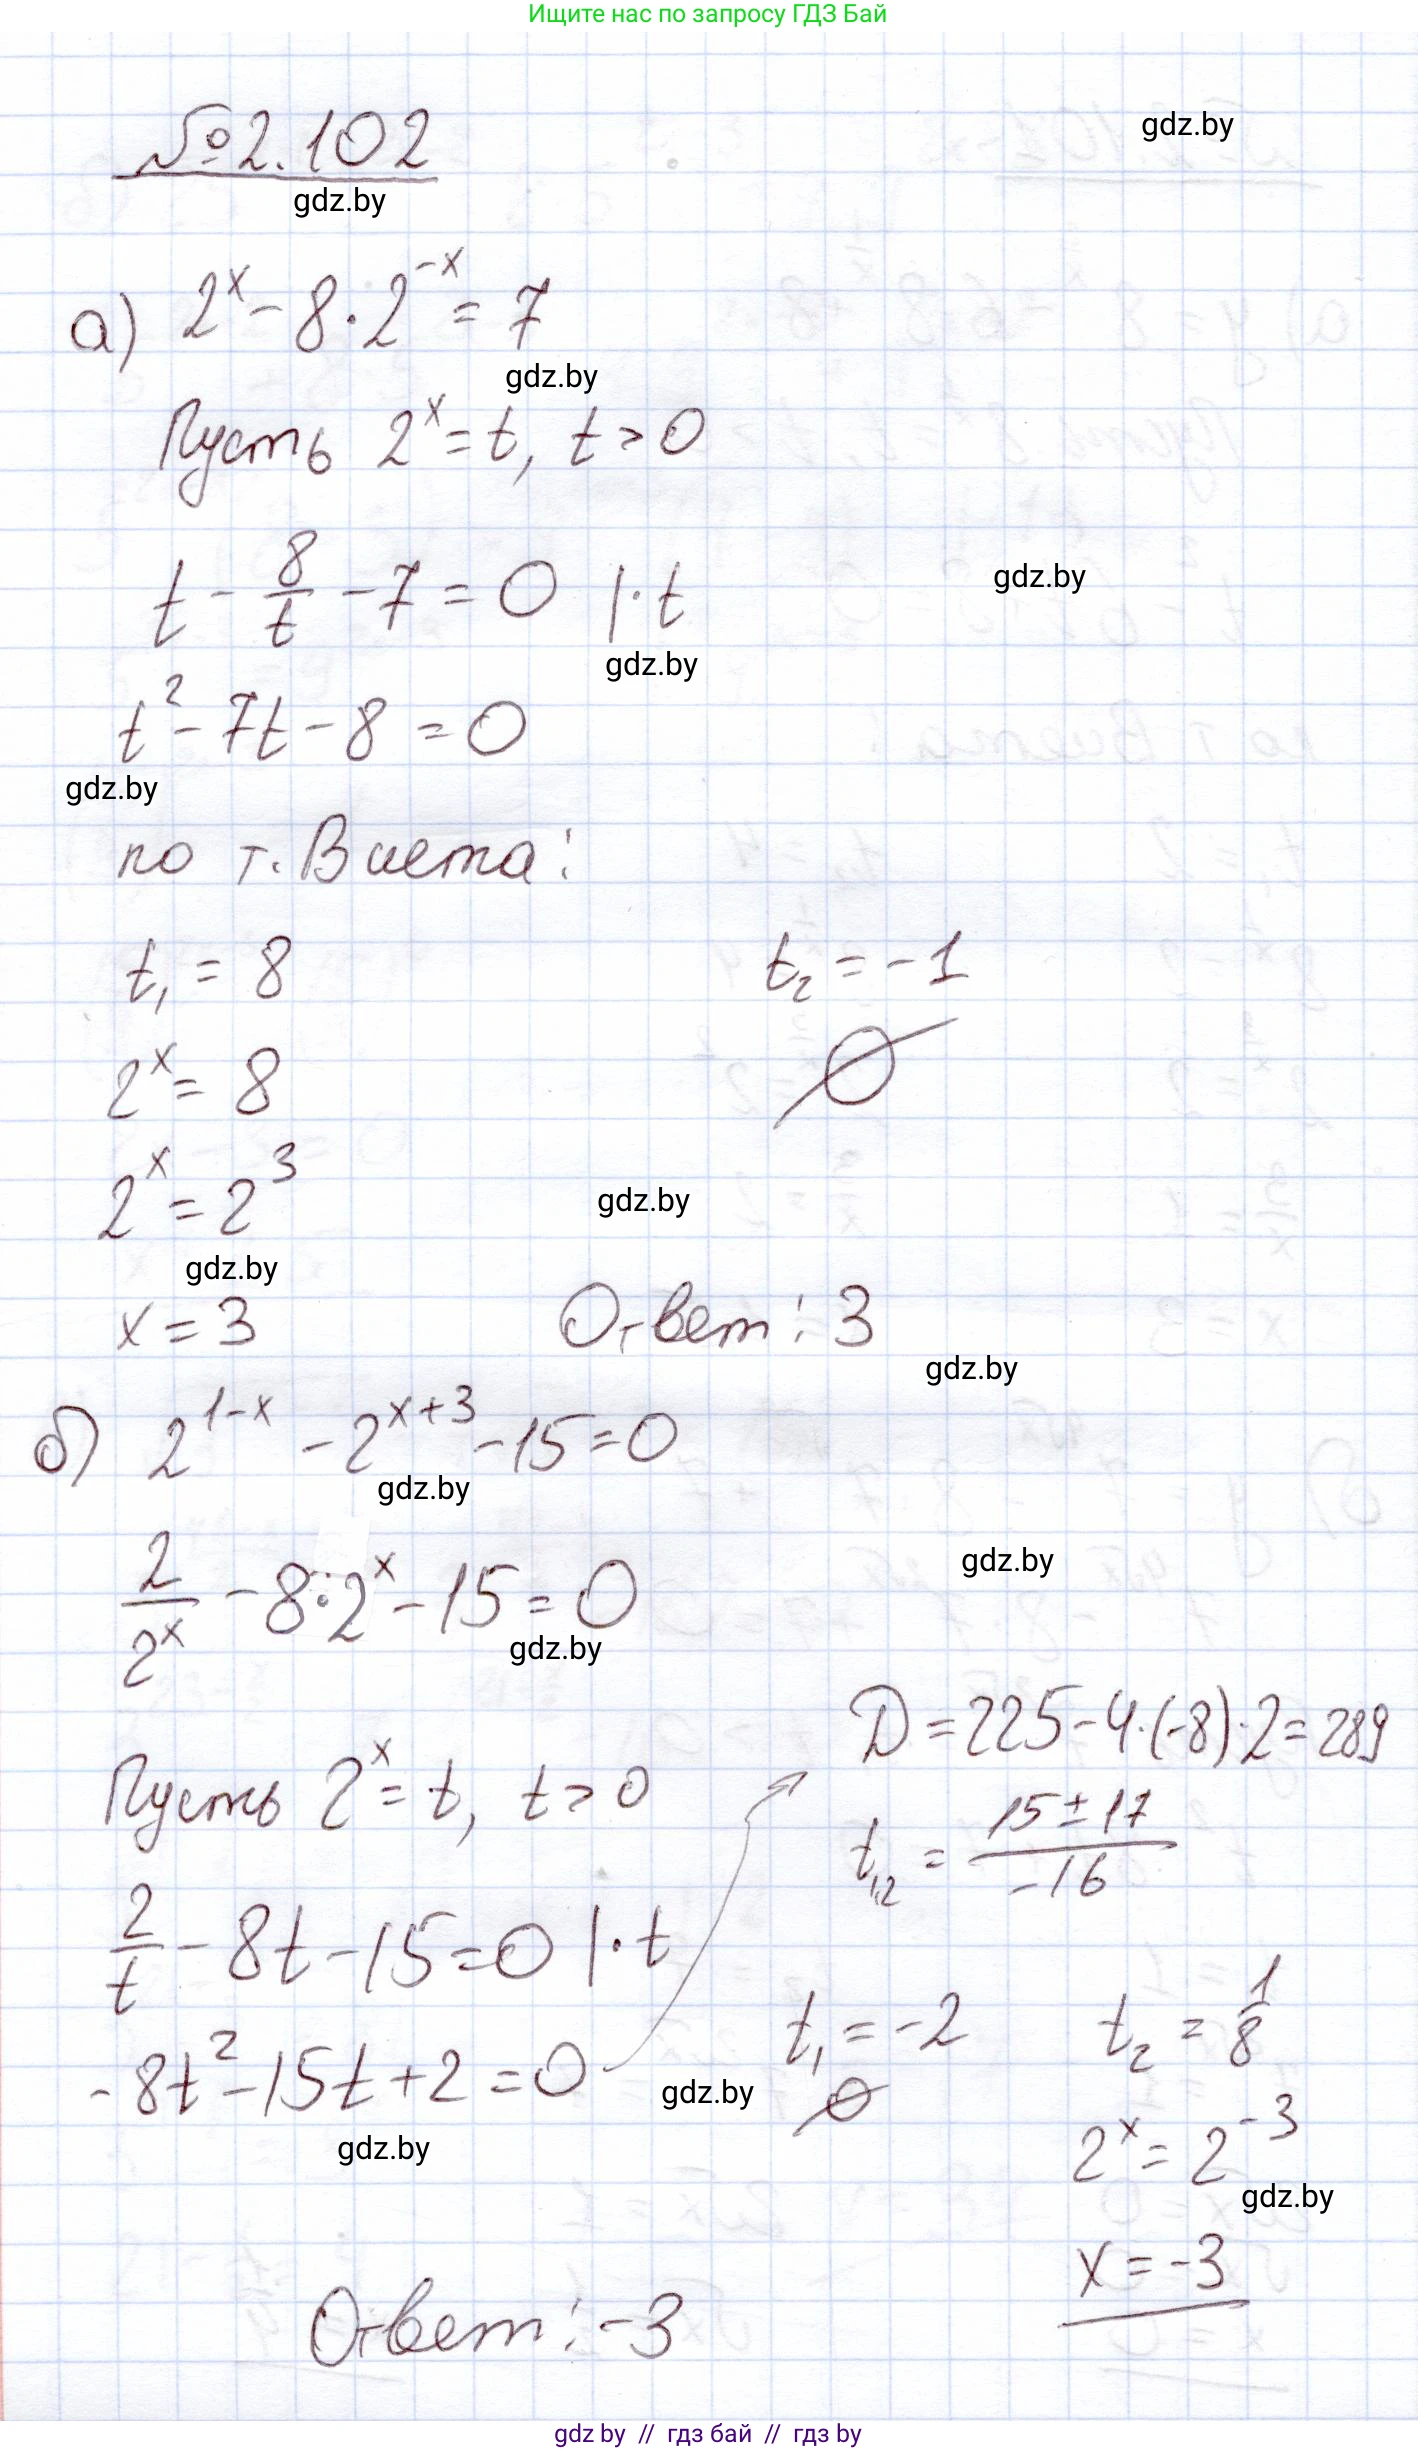 Ищите нас по запросу ГДЗ Бай
№2.102
gdz.by
gdz.by
а) 2^x - 8·2^-x = 7
gdz.by
Пусть 2^x = t, t > 0
t - 8/t - 7 = 0 |·t
gdz.by
gdz.by
t² - 7t - 8 = 0
gdz.by
по т. Виета:
t₁ = 8
t₂ = -1
2^x = 8
∅
2^x = 2^3
gdz.by
gdz.by
x = 3
Ответ: 3
gdz.by
б) 2^1-x - 2^x+3 - 15 = 0
gdz.by
2/2^x - 8·2^x - 15 = 0
gdz.by
gdz.by
Пусть 2^x = t, t > 0
2/t - 8t - 15 = 0 |·t
-8t² - 15t + 2 = 0
gdz.by
gdz.by
D = 225 - 4·(-8)·2 = 289
t₁,₂ = 15 ± 17 / -16
t₁ = -2
∅
t₂ = 1/8
2^x = 2^-3
gdz.by
x = -3
Ответ: -3
gdz by // гдз бай // гдз by